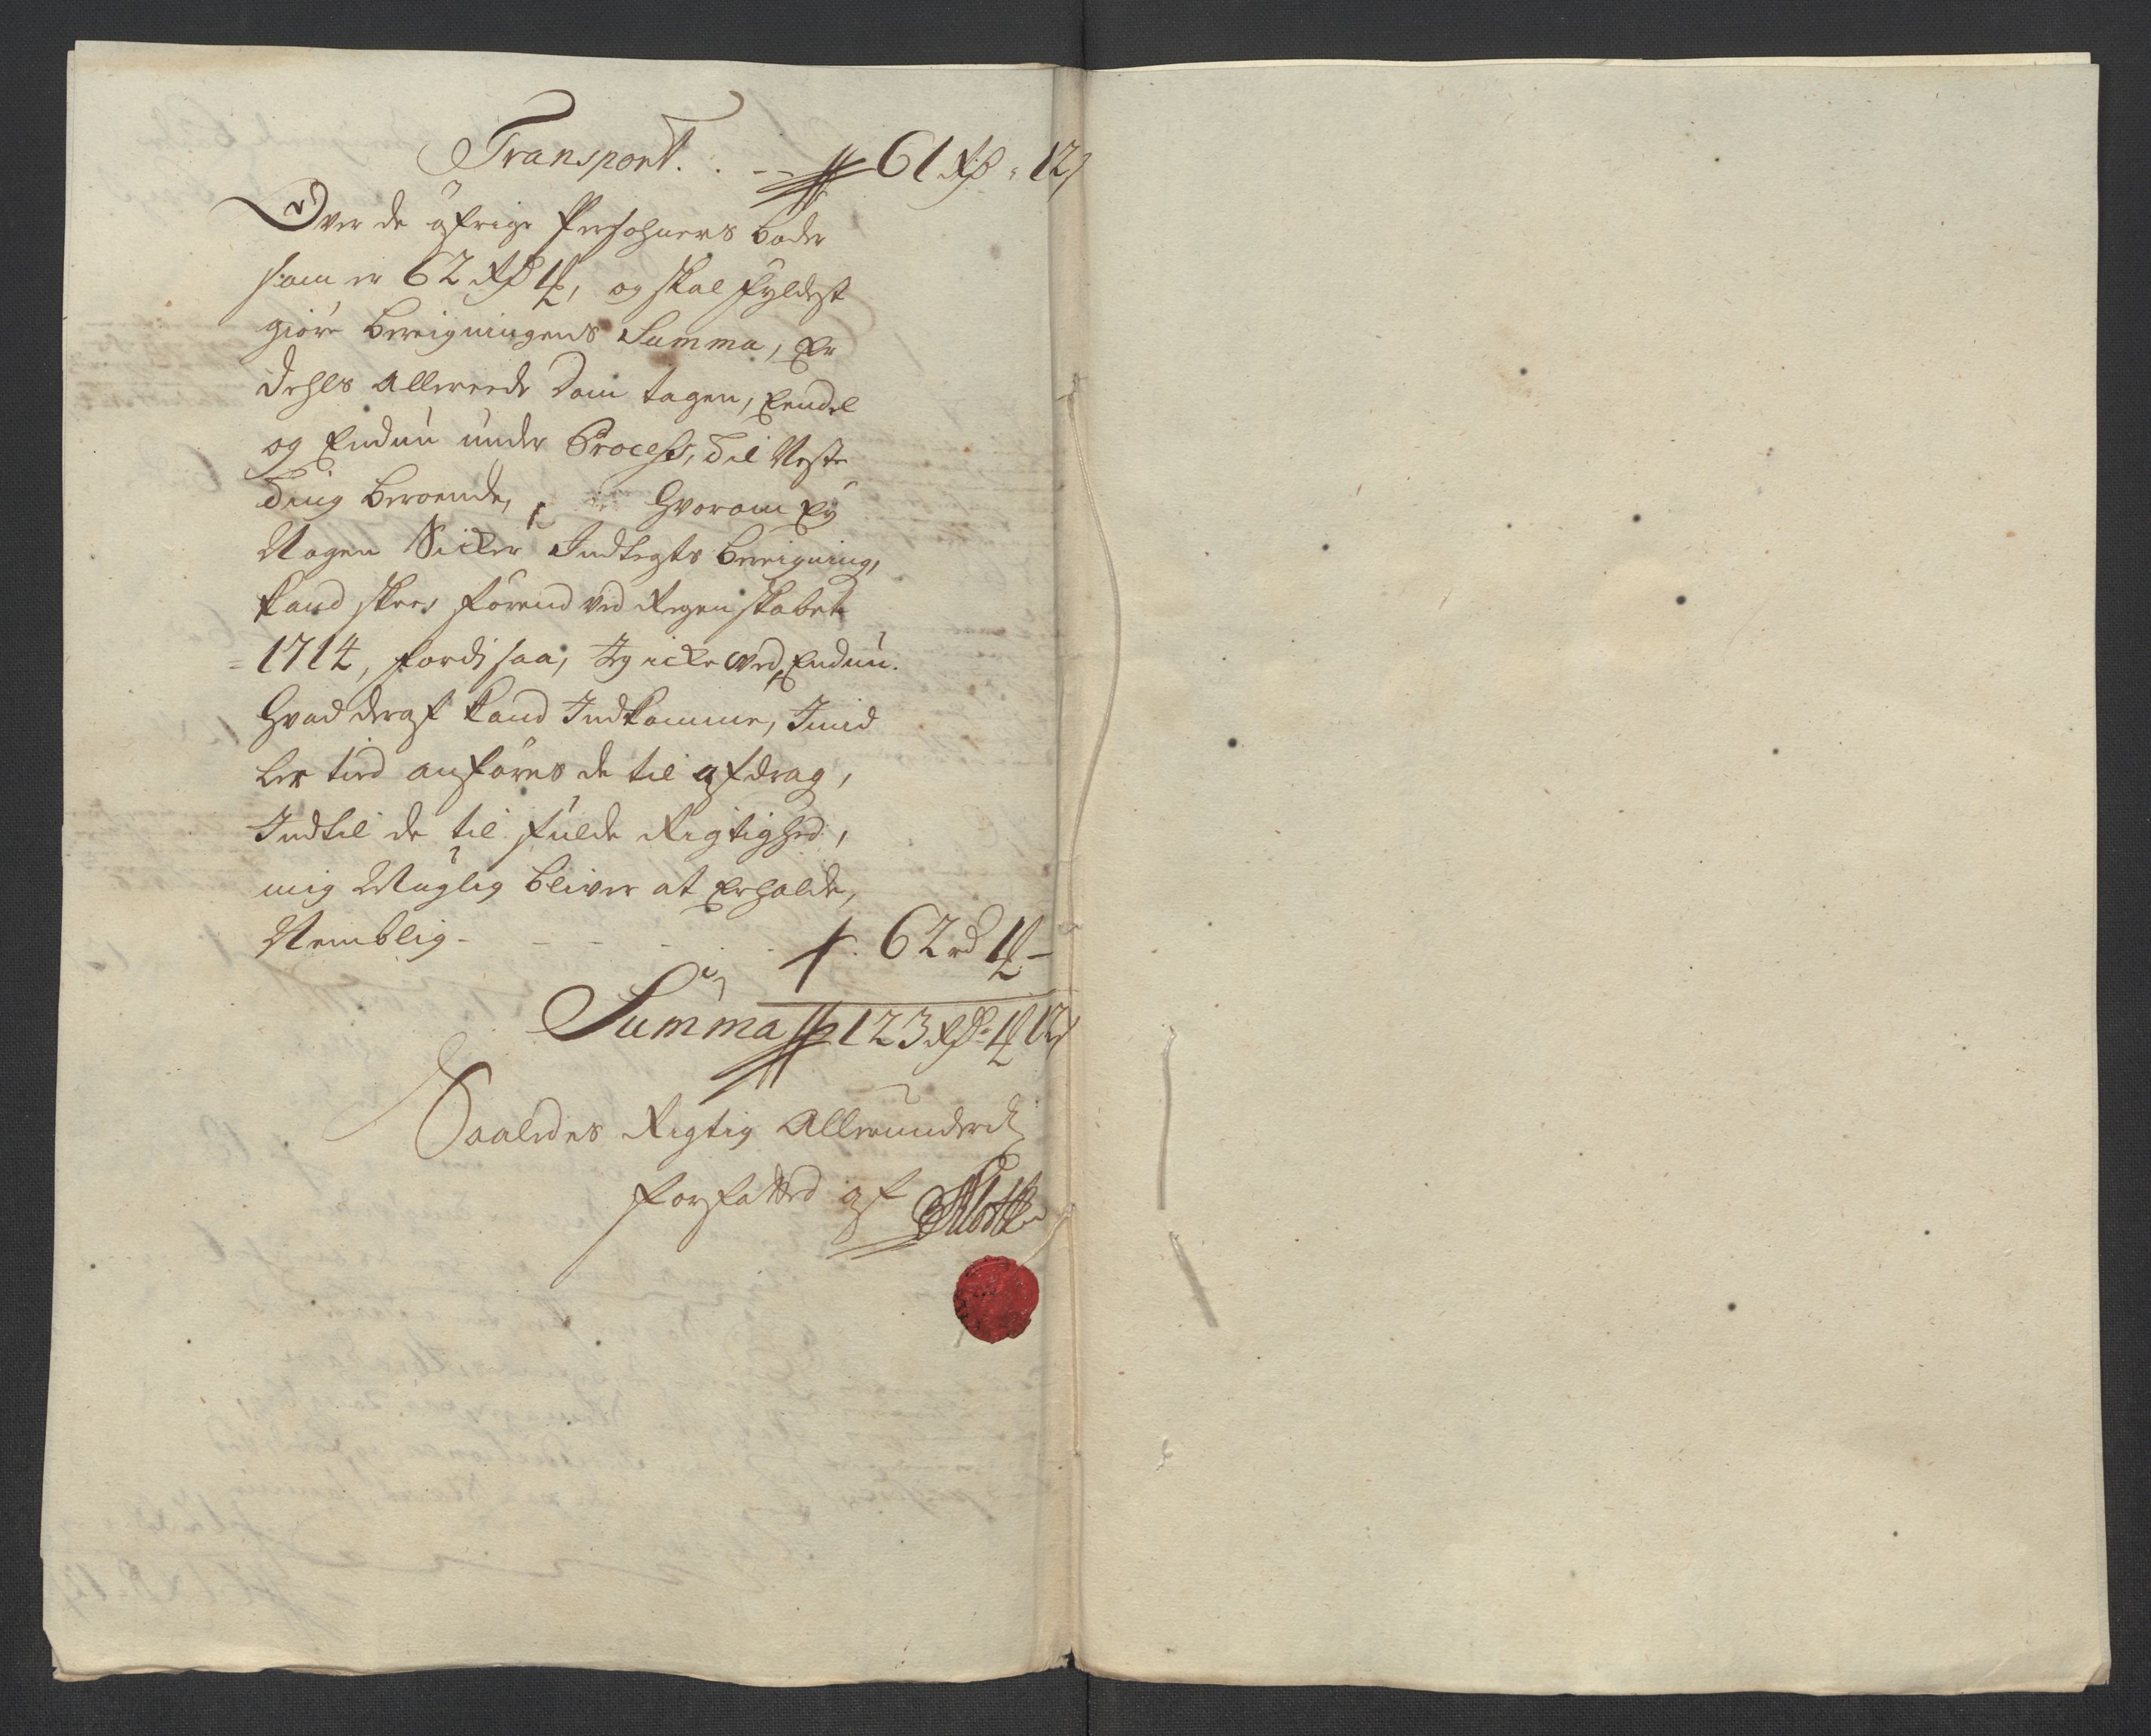 Transport. . -- 61 Rd - 12
Over de öfrige Persohners bøder
som er 62 Rd ½, og skal fyldest
giöre Bereigningens Summa, Er
dehls Allereede Dom tagen, Eendel
og Endnu under Process, til Neste
Ting Beroende, Hvorom Ey
Nogen Sicker Indtegts Bereigning,
kand skee, førend ved Regenskabet
1714, fordi saa, Jeg icke ved Endnu.
Hvad deraf kand Indkomme, Imid
ler tied anføres de til afdrag,
Indtil de til fulde Rigtighed,
mig Muglig bliver at Erholde,
Nemblig - - - - . . 62 rd ½ -
Summa 123 Rd ½ 12
Saaledes Rigtig Allerunderd:
forfatted af